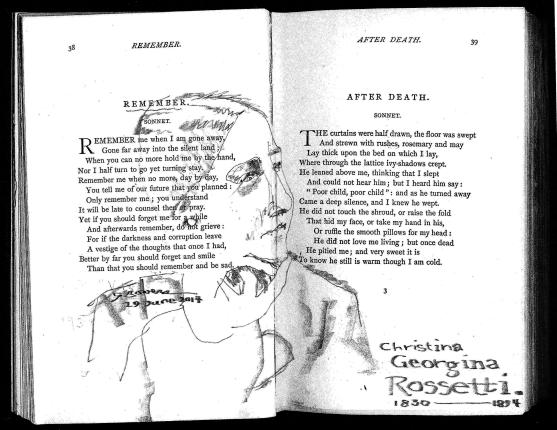 38
REMEMBER.
REMEMBER.
SONNET.
REMEMBER me when I am gone away,
Gone far away into the silent land;
When you can no more hold me by the hand,
Nor I half turn to go yet turning stay.
Remember me when no more, day by day,
You tell me of our future that you planned:
Only remember me; you understand
It will be late to counsel then or pray.
Yet if you should forget me for a while
And afterwards remember, do not grieve:
For if the darkness and corruption leave
A vestige of the thoughts that once I had,
Better by far you should forget and smile
Than that you should remember and be sad.
29 June
AFTER DEATH.
39
AFTER DEATH.
SONNET.
THE curtains were half drawn, the floor was swept
And strewn with rushes, rosemary and may
Lay thick upon the bed on which I lay,
Where through the lattice ivy-shadows crept.
He leaned above me, thinking that I slept
And could not hear him; but I heard him say:
"Poor child, poor child": and as he turned away
Came a deep silence, and I knew he wept.
He did not touch the shroud, or raise the fold
That hid my face, or take my hand in his,
Or ruffle the smooth pillows for my head:
He did not love me living; but once dead
He pitied me; and very sweet it is
To know he still is warm though I am cold.
3
Christina
Georgina
Rossetti.
1830 — 1894